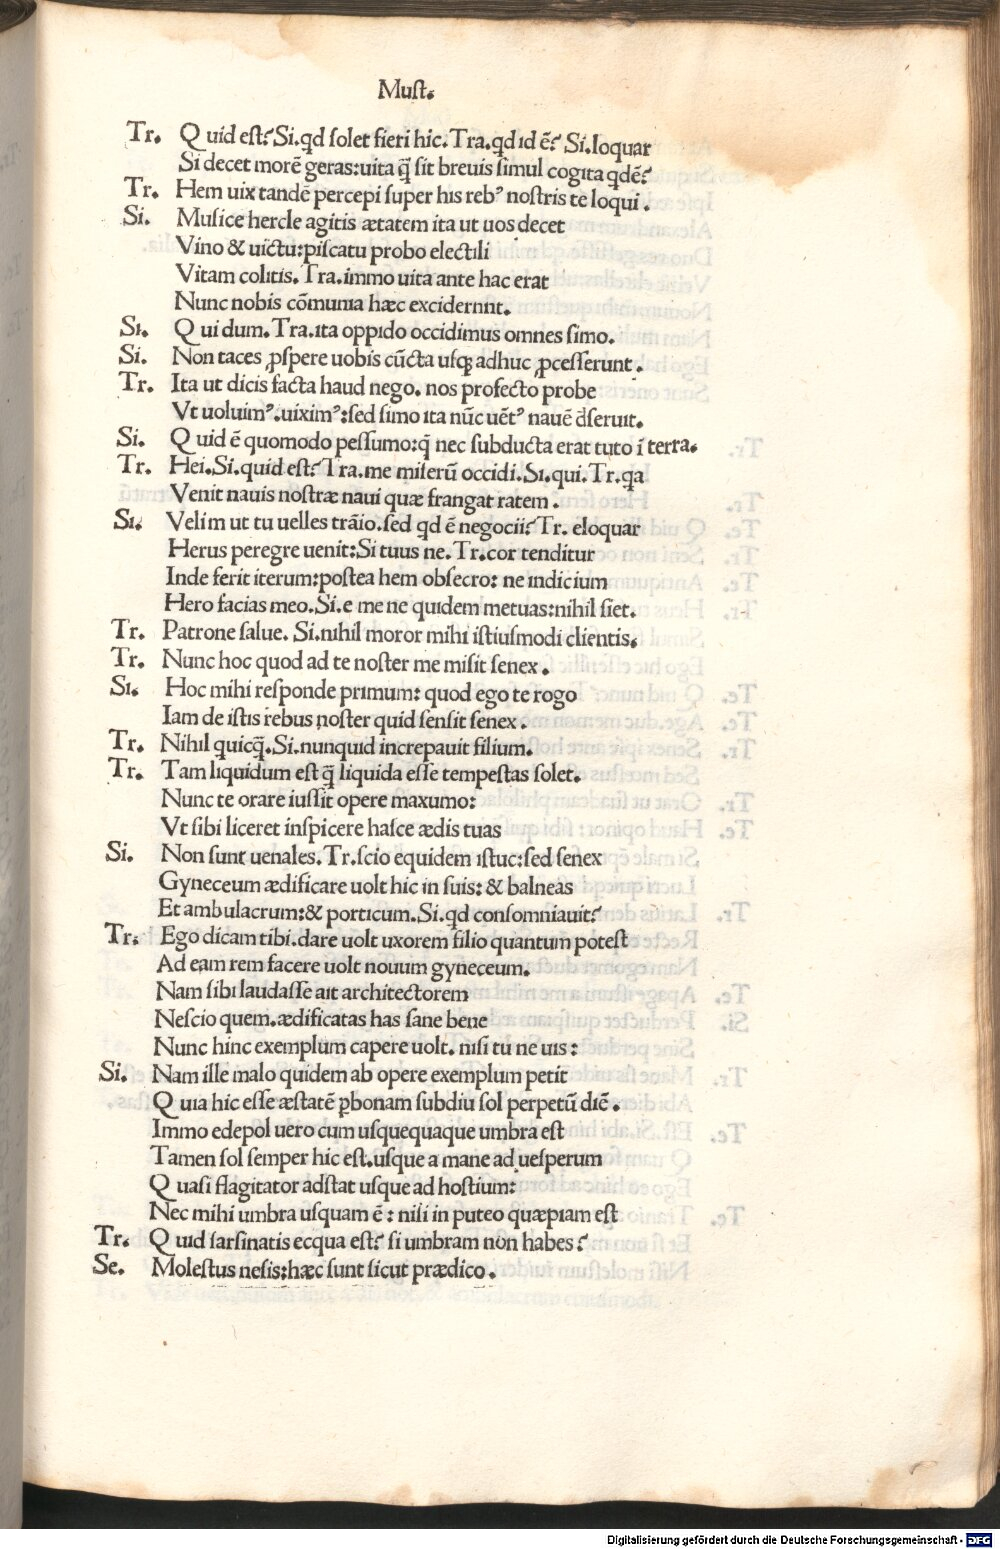 Muſt.
Tr. Quid eſt? Si. qd ſolet fieri hic. Tra. qd id ē? Si. loquar
Si decet morē geras: uita q̄ ſit breuis ſimul cogita qdē?
Tr. Hem uix tandē percepi ſuper his rebꝰ noſtris te loqui.
Si. Muſice hercle agitis ætatem ita ut uos decet
Vino & uictu: piſcatu probo electili
Vitam colitis. Tra. immo uita ante hac erat
Nunc nobis cōmunia hæc exciderunt.
Si. Qui dum. Tra. ita oppido occidimus omnes ſimo.
Si. Non taces ꝓſpere uobis cūcta uſq; adhuc ꝓceſſerunt.
Tr. Ita ut dicis facta haud nego. nos profecto probe
Vt uoluimꝰ. uiximꝰ: ſed ſimo ita nūc uētꝰ nauē dſeruit.
Si. Quid ē quomodo peſſumo: q̄ nec ſubducta erat tuto ī terra.
Tr. Hei. Si. quid eſt? Tra. me miſerū occidi. Si. qui. Tr. qa
Venit nauis noſtræ naui quæ frangat ratem.
Si. Velim ut tu uelles trāio. ſed qd ē negocii? Tr. eloquar
Herus peregre uenit: Si tuus ne. Tr. cor tenditur
Inde ferit iterum: poſtea hem obſecro: ne indicium
Hero facias meo. Si. e me ne quidem metuas: nihil fiet.
Tr. Patrone ſalue. Si. nihil moror mihi iſtiuſmodi clientis.
Tr. Nunc hoc quod ad te noſter me miſit ſenex.
Si. Hoc mihi reſponde primum: quod ego te rogo
Iam de iſtis rebus noſter quid ſenſit ſenex.
Tr. Nihil quicq̄. Si. nunquid increpauit filium.
Tr. Tam liquidum eſt q̄ liquida eſſe tempeſtas ſolet.
Nunc te orare iuſſit opere maxumo:
Vt ſibi liceret inſpicere haſce ædis tuas
Si. Non ſunt uenales. Tr. ſcio equidem iſtuc: ſed ſenex
Gyneceum ædificare uolt hic in ſuis: & balneas
Et ambulacrum: & porticum. Si. qd conſomniauit?
Tr. Ego dicam tibi. dare uolt uxorem filio quantum poteſt
Ad eam rem facere uolt nouum gyneceum.
Nam ſibi laudaſſe ait architectorem
Neſcio quem. ædificatas has ſane bene
Nunc hinc exemplum capere uolt. niſi tu ne uis:
Si. Nam ille malo quidem ab opere exemplum petit
Quia hic eſſe æſtatē ꝓbonam ſubdiu ſol perpetū diē.
Immo edepol uero cum uſquequaque umbra eſt
Tamen ſol ſemper hic eſt. uſque a mane ad ueſperum
Quaſi flagitator adſtat uſque ad hoſtium:
Nec mihi umbra uſquam ē: niſi in puteo quæpiam eſt
Tr. Quid ſarſinatis ecqua eſt? ſi umbram non habes?
Se. Moleſtus neſis: hæc ſunt ſicut prædico.
Digitalisierung gefördert durch die Deutsche Forschungsgemeinschaft - DFG